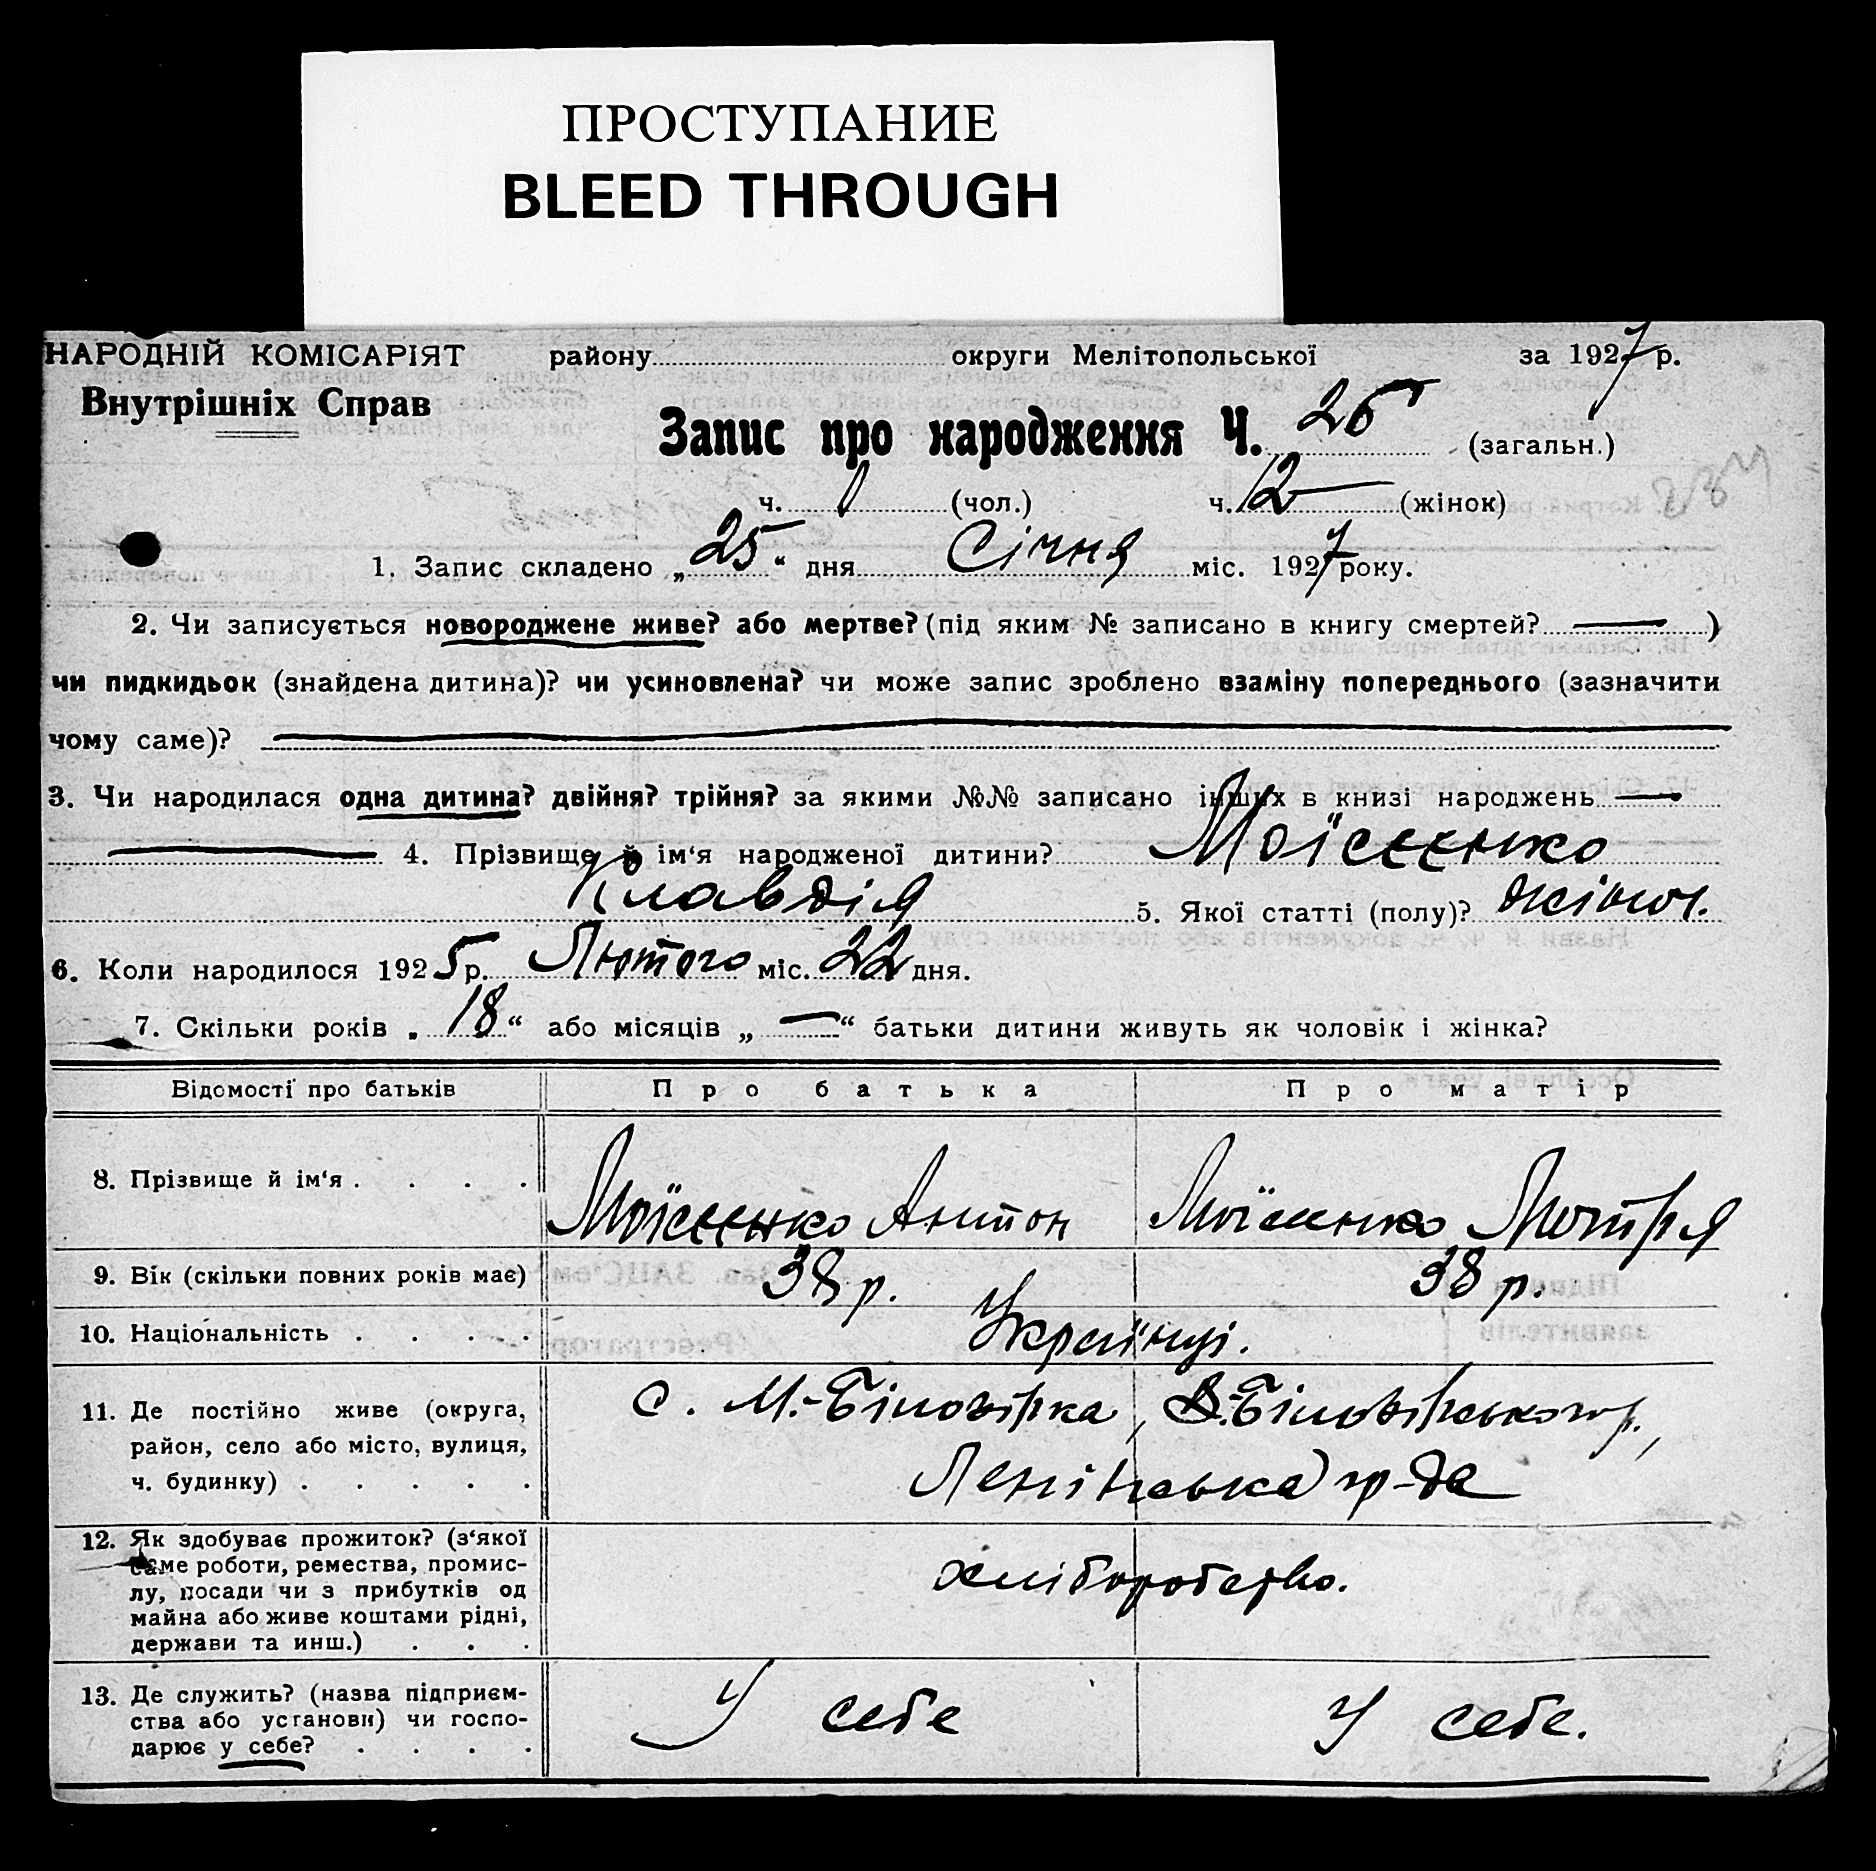 ПРОСТУПАНИЕ
BLEED THROUGH
НАРОДНІЙ КОМІСАРІЯТ району округи Мелітопольської за 1927 р.
Внутрішніх Справ
Запис про народження Ч. 25 (загальн.)
ч. (чол.) ч. 12 — (жінок)
1. Запис складено „25“ дня Січня міс. 1927 року.
2. Чи записується новороджене живе? або мертве? (під яким № записано в книгу смертей? — )
чи пидкидьок (знайдена дитина)? чи усиновлена? чи може запис зроблено взаміну попереднього (зазначити
чому саме)? —
3. Чи народилася одна дитина? двійня? трійня? за якими №№ записано інших в книзі народжень —
— 4. Прізвище й ім‘я народженої дитини? Моїсєєнко
Клавдія 5. Якої статті (полу)? жіноч.
6. Коли народилося 1925 р. Лютого міс. 22 дня.
7. Скільки років „18“ або місяців „—“ батьки дитини живуть як чоловік і жінка?
Відомості про батьків Про батька Про матір
8. Прізвище й ім‘я . . . . Моїсєєнко Антон Моїсєєнко Мотря
9. Вік (скільки повних років має) 38 р. 38 р.
10. Національність . . . . Українці.
11. Де постійно живе (округа, с. М.-Білозірка, В.-Білозірського р.,
район, село або місто, вулиця,
ч. будинку) . . . . . Ленінська гр-да
12. Як здобуває прожиток? (з‘якої
саме роботи, ремества, промис-
лу, посади чи з прибутків од хліборобство.
майна або живе коштами рідні,
держави та инш.) . . .
13. Де служить? (назва підприєм-
ства або установи) чи госпо- У себе У себе.
дарює у себе? . . . .